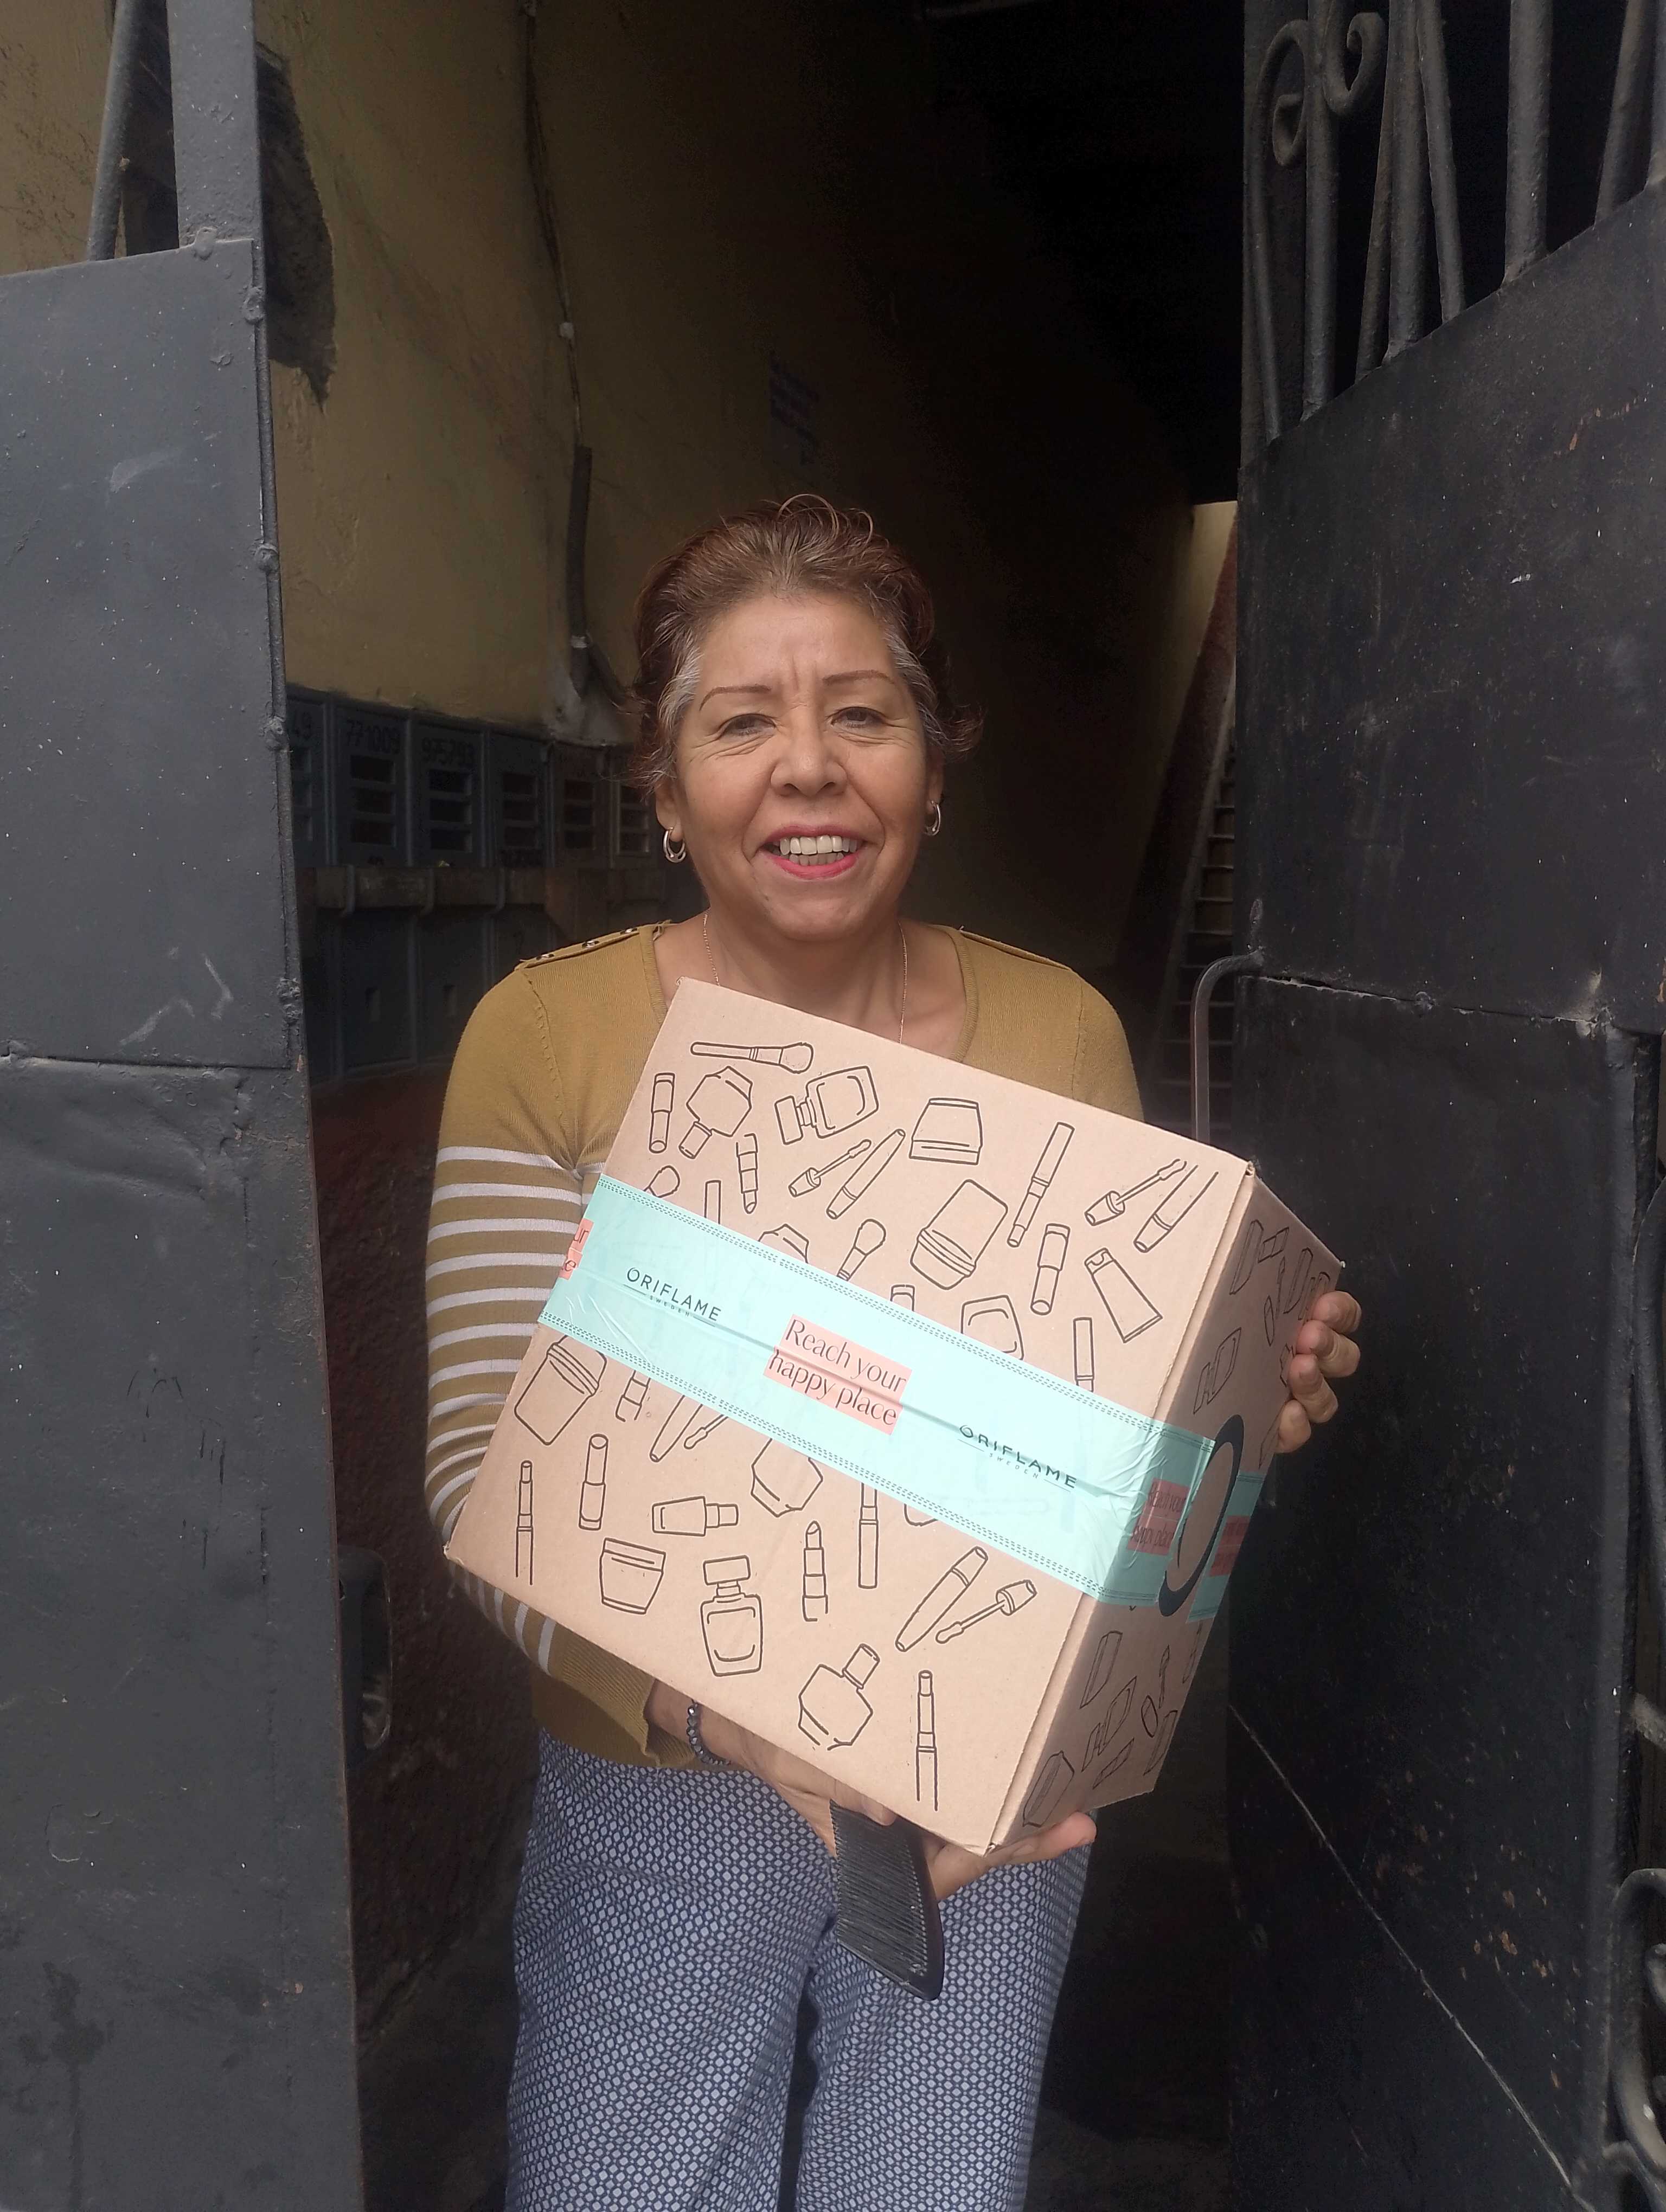 771009
975793
ORIFLAME
SWEDEN
Reach your
happy place
ORIFLAME
SWEDEN